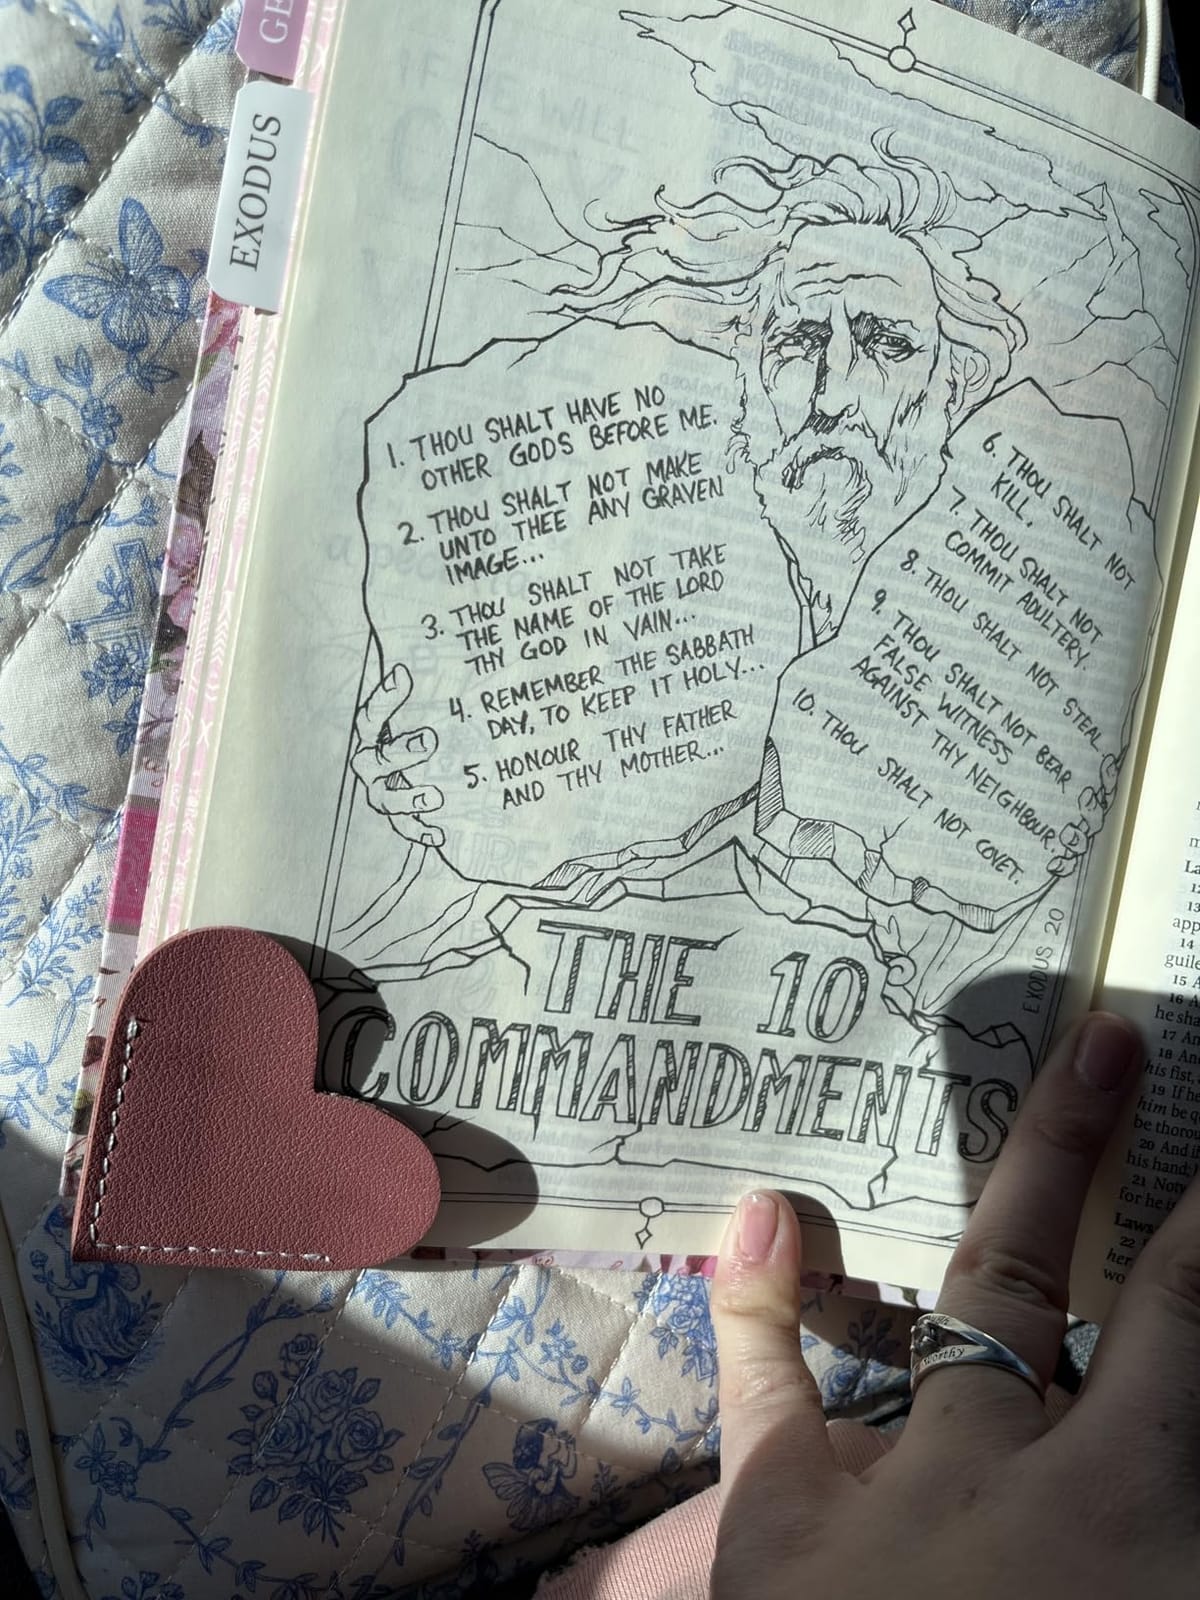 GE
EXODUS
1. THOU SHALT HAVE NO
OTHER GODS BEFORE ME.
2. THOU SHALT NOT MAKE
UNTO THEE ANY GRAVEN
IMAGE...
3. THOU SHALT NOT TAKE
THE NAME OF THE LORD
THY GOD IN VAIN...
4. REMEMBER THE SABBATH
DAY, TO KEEP IT HOLY...
5. HONOUR THY FATHER
AND THY MOTHER...
6. THOU SHALT NOT
KILL.
7. THOU SHALT NOT
COMMIT ADULTERY.
8. THOU SHALT NOT STEAL.
9. THOU SHALT NOT BEAR
FALSE WITNESS
AGAINST THY NEIGHBOUR.
10. THOU SHALT NOT COVET.
THE 10
COMMANDMENTS
EXODUS 20
La
12
13
app
14
guile
15 A
16 A
he sha
17 An
18 An
his fist,
19 If he
him be qu
be thorou
20 And if
his hand;
21 Notw
for he is
Laws
22
her
wo
worthy